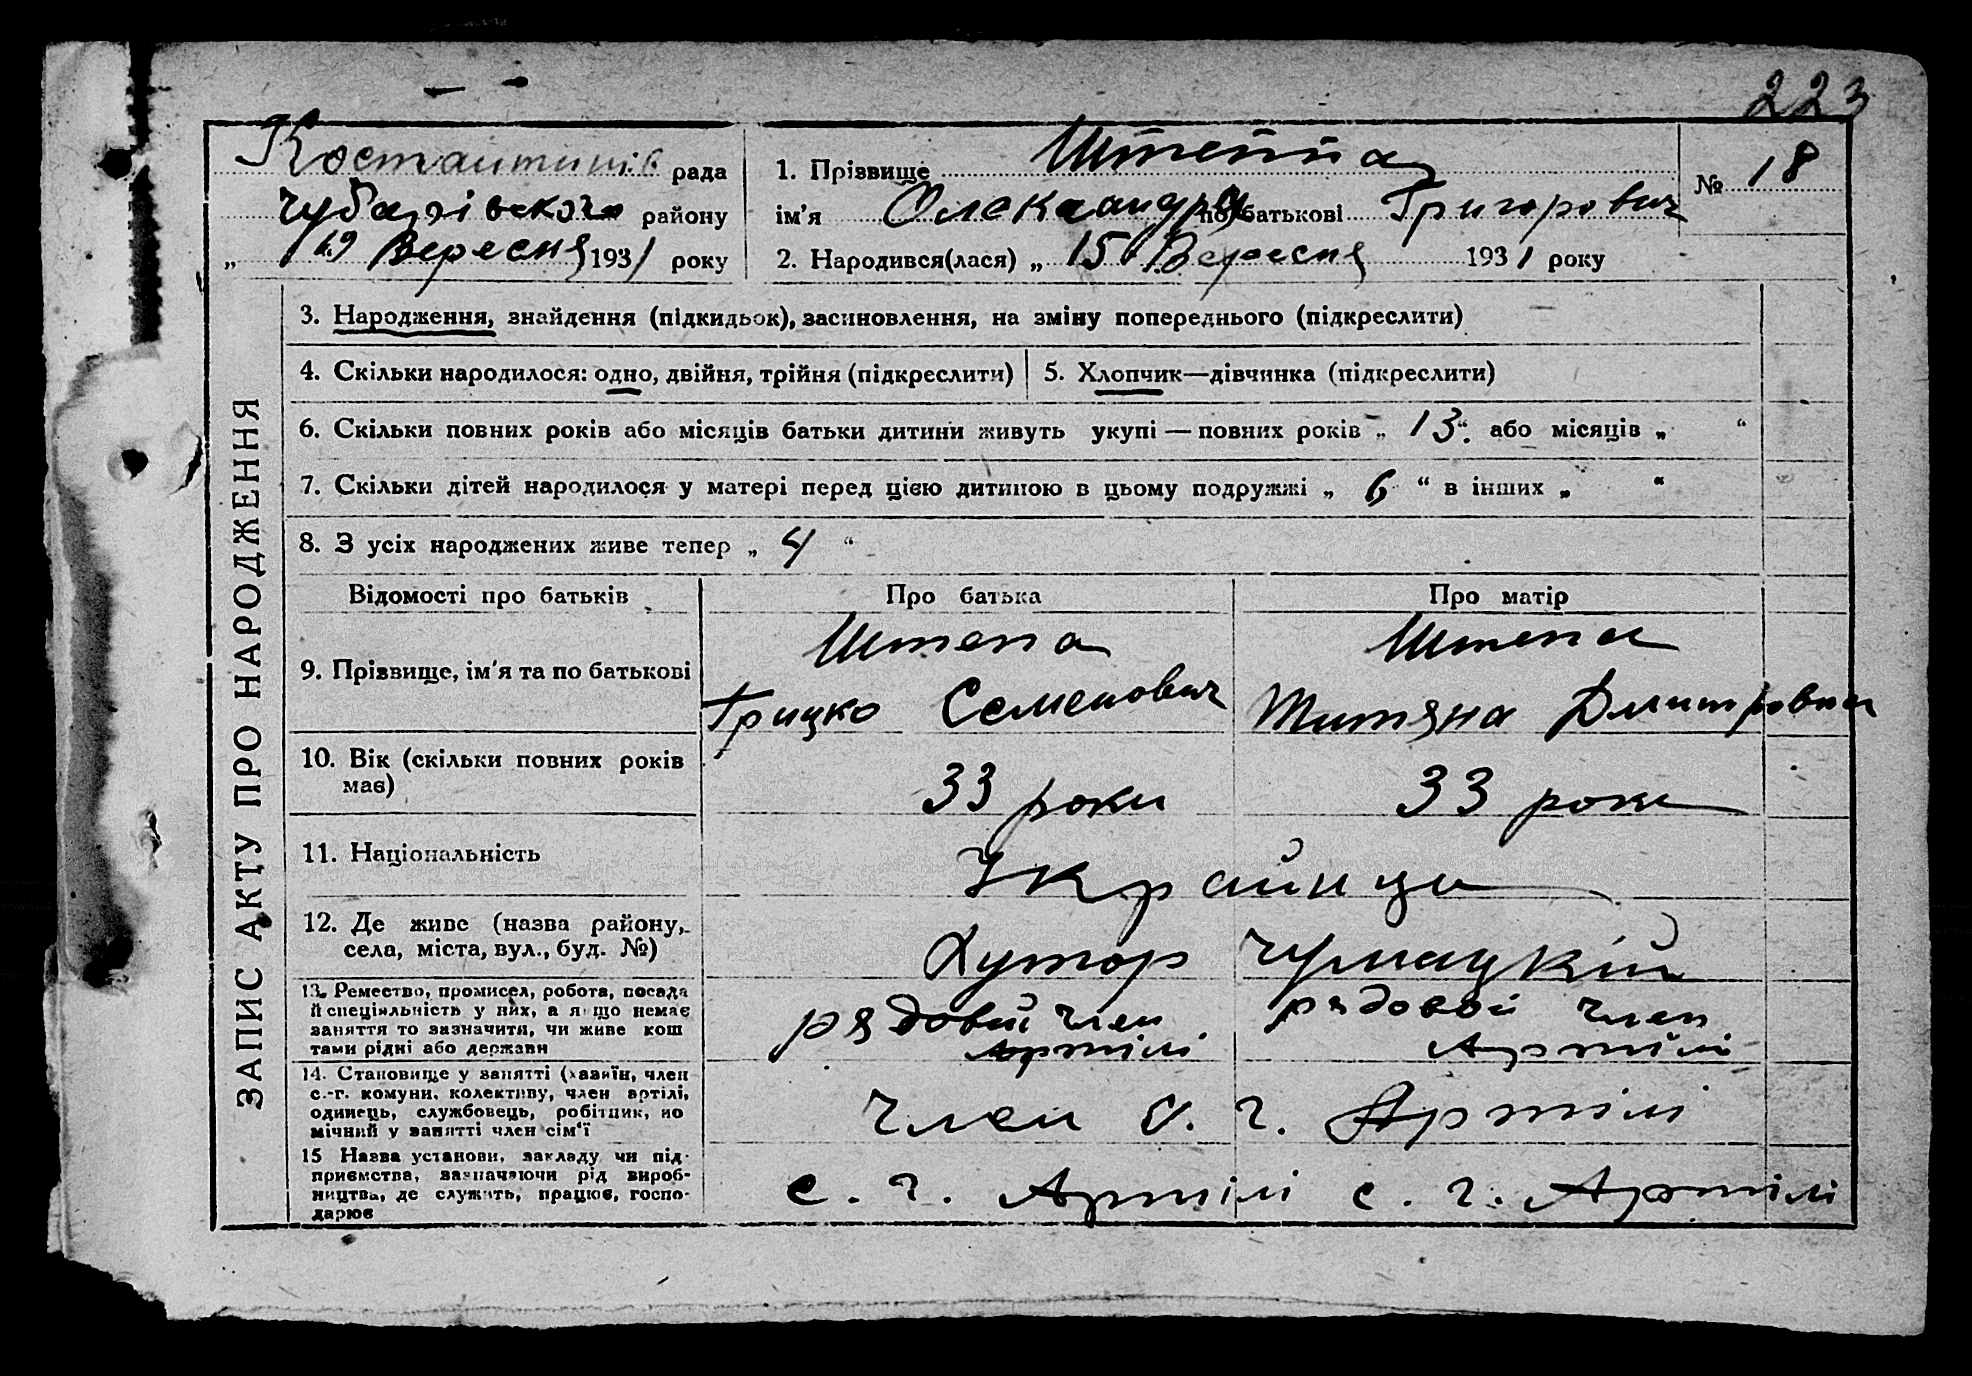 223
Костантинів рада
Чубарівського району
„ 19 Вересня 1931 року
1. Прізвище Штеппа
ім'я Олександр по батькові Григорович
№ 18
2. Народився(лася) „ 15 Вересня 1931 року
ЗАПИС АКТУ ПРО НАРОДЖЕННЯ
3. Народження, знайдення (підкидьок), засиновлення, на зміну попереднього (підкреслити)
4. Скільки народилося: одно, двійня, трійня (підкреслити)
5. Хлопчик—дівчинка (підкреслити)
6. Скільки повних років або місяців батьки дитини живуть укупі — повних років „ 13 “. або місяців „ “
7. Скільки дітей народилося у матері перед цією дитиною в цьому подружжі „ 6 “ в інших „ “
8. З усіх народжених живе тепер „ 4 “
Відомості про батьків
Про батька
Про матір
9. Прізвище, ім'я та по батькові
Штепа
Грицко Семенович
Штепа
Титяна Дмитровна
10. Вік (скільки повних років
має)
33 роки
33 роки
11. Національність
Українци
12. Де живе (назва району,
села, міста, вул., буд. №)
Хутор Чумацкий
13. Ремество, промисел, робота, посада
й спеціяльність у них, а якщо немає
заняття то зазначити, чи живе кош
тами рідні або держави
рядовий член
Артілі
рядовой член
Артілі
14. Становище у занятті (хазяїн, член
с.-г. комуни, колективу, член артілі,
одинець, службовець, робітник, по
мічний у занятті член сім'ї
Член с. г. Артілі
15 Назва установи, закладу чи під-
приємства, зазначаючи рід вироб-
ництва, де служить, працює, госпо-
дарює
с. г. Артілі
с. г. Артілі